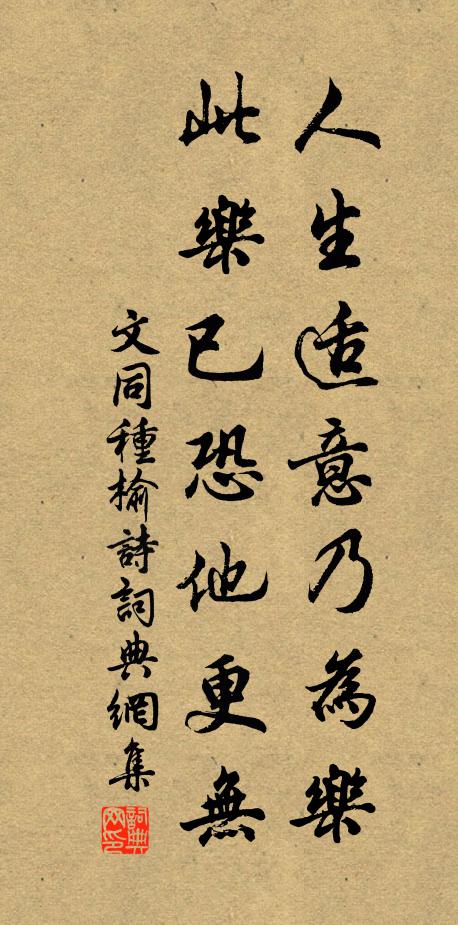 人生适意乃為樂
此樂已恐他更無
文同種榆詩詞典網集
詞典
网印